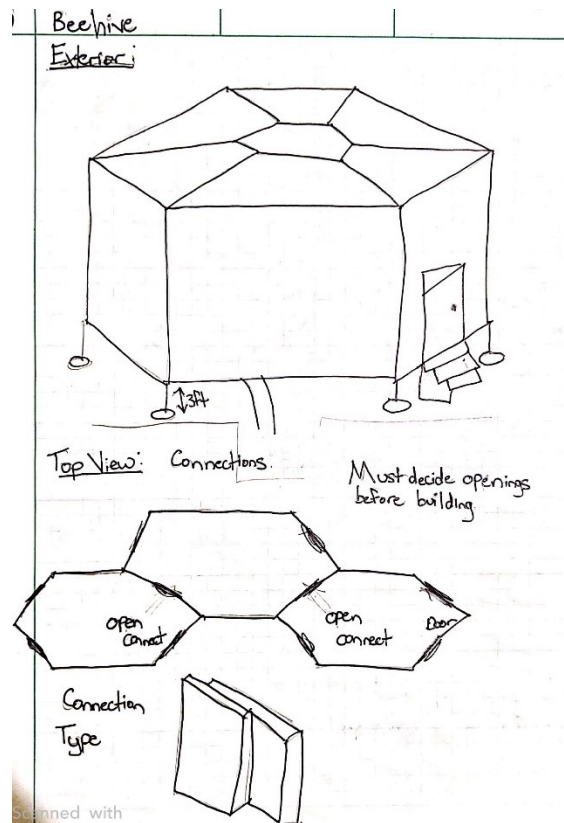 Beehive
Exterior:
3ft
Top View: Connections.
Must decide openings
before building
open
connect
open
connect
Door
Connection
Type
Scanned with